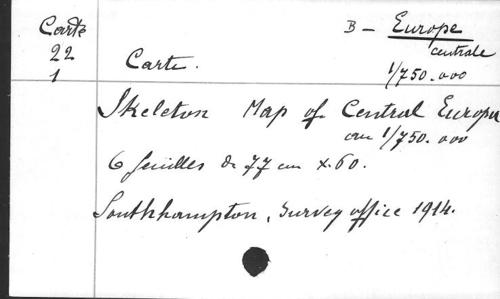 Carte
22
1
B - Europe
centrale
1/750.000
Carte.
Skeleton Map of Central Europe
au 1/750.000
6 feuilles de 77 cm x 60.
Southhampton, Survey office 1914.